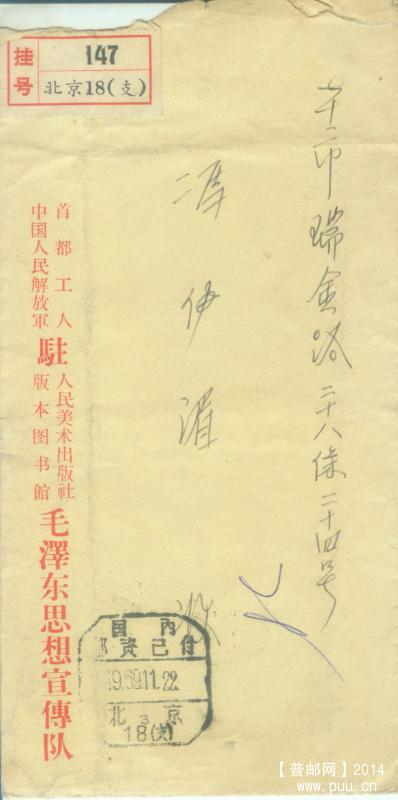 挂号
147
北京18(支)
本市瑞金路二十八條二十四号
冯伊湄
收
首都工人
中国人民解放軍
駐
人民美术出版社
版本图书館
毛澤东思想宣傳队
国内
邮资已付
1969.11.22
北京
3
18(支)
【普邮网】2014
www.puu.cn